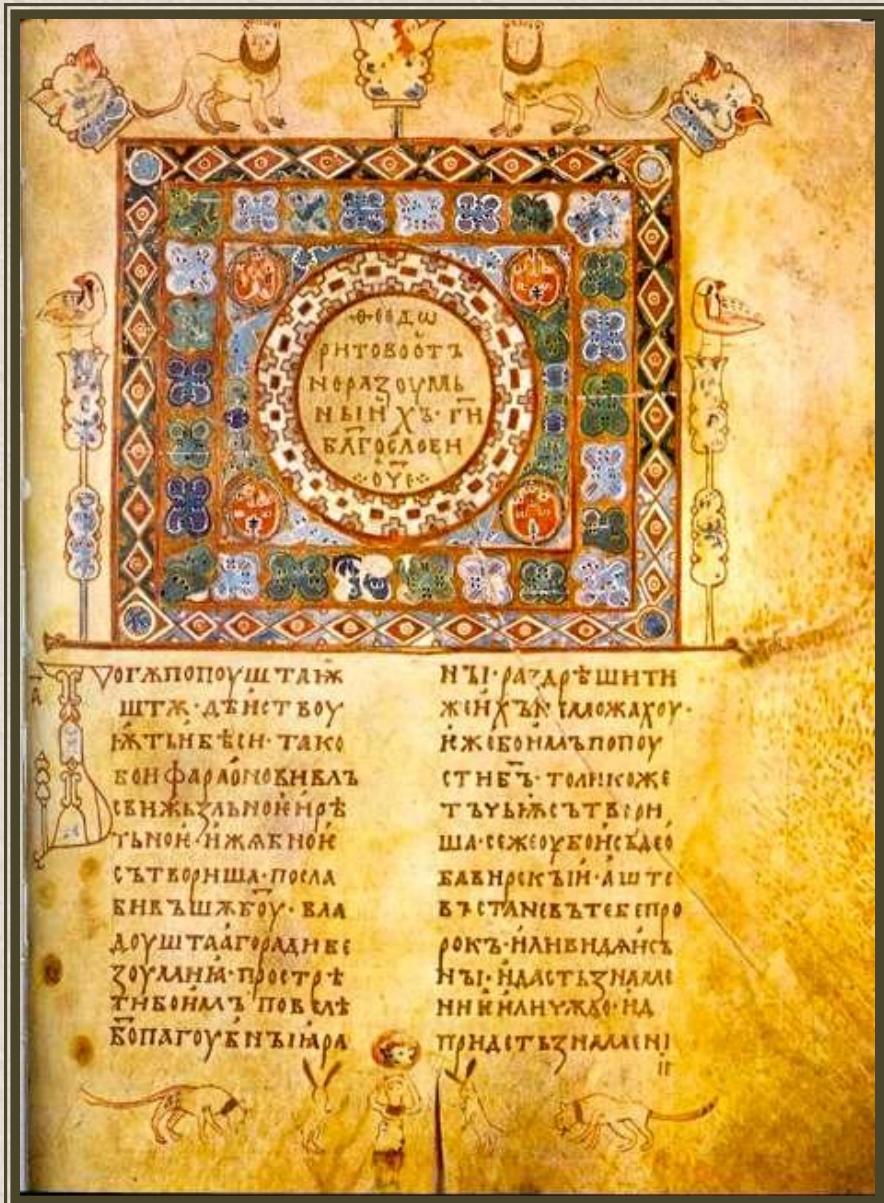 ѲЕОДѠ
РИТОВООТЪ
НЕРАЗОУМЬ
НЫИХЪ· Г͠И
БЛ͠ГОСЛОВЕН
О͠ЧЕ
д͠
ОГѪПОПОУШТАѬ
ШТѪ·ДѢИСТВОУ
ѬТЬИБѢСИ·ТАКО
БОИФАРАОНОВИВЛЪ
СВИЖЬЗЛЬНОЮИРѢ
ТЬНОЮ·ИЖѦБНОЮ
СЪТВОРИША·ПОСЛА
БИВЪШѪБ͠ОУ·ВЛА
ДОУШТААГОРАДИБЕ
ЗОУМИꙖ·ПРОСТРѢ
ТИБОИМЪПОВЕЛѢ
Б͠ОПАГОУБНЫꙖРА
НЫ·РАЗДРѢШИТИ
ЖЕИХЪНЕМОЖАХОУ·
ѤЖЕБОИМЪПОПОУ
СТИБ͠Ъ·ТОЛИКОЖЕ
ТЪЧЬѬСЪТВОРИ
ША·СЕЖЕОУБОИСЪДЕО
БАВИРСКЫИ·АШТЕ
ВЪСТАНЕВЪТЕБЕПРО
РОКЪ·ИЛИВИДѦИСЪ
НЫ·ИДАСТЬЗНАМЕ
НИѤИЛИЧЮДО·ИД
ПРИДЕТЬЗНАМЕНІ